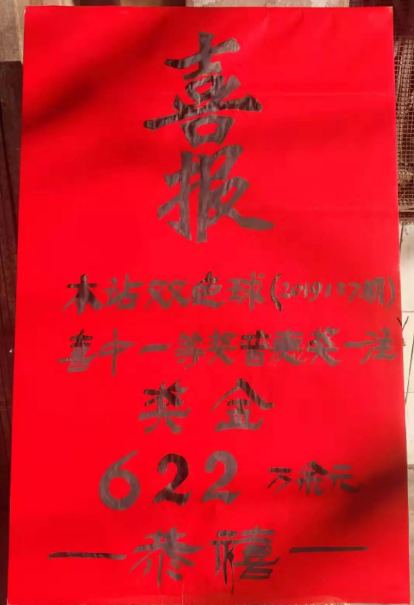 喜
报
本站双色球(2019137期)
喜中一等奖普惠奖一注
奖金
622万余元
—恭禧—